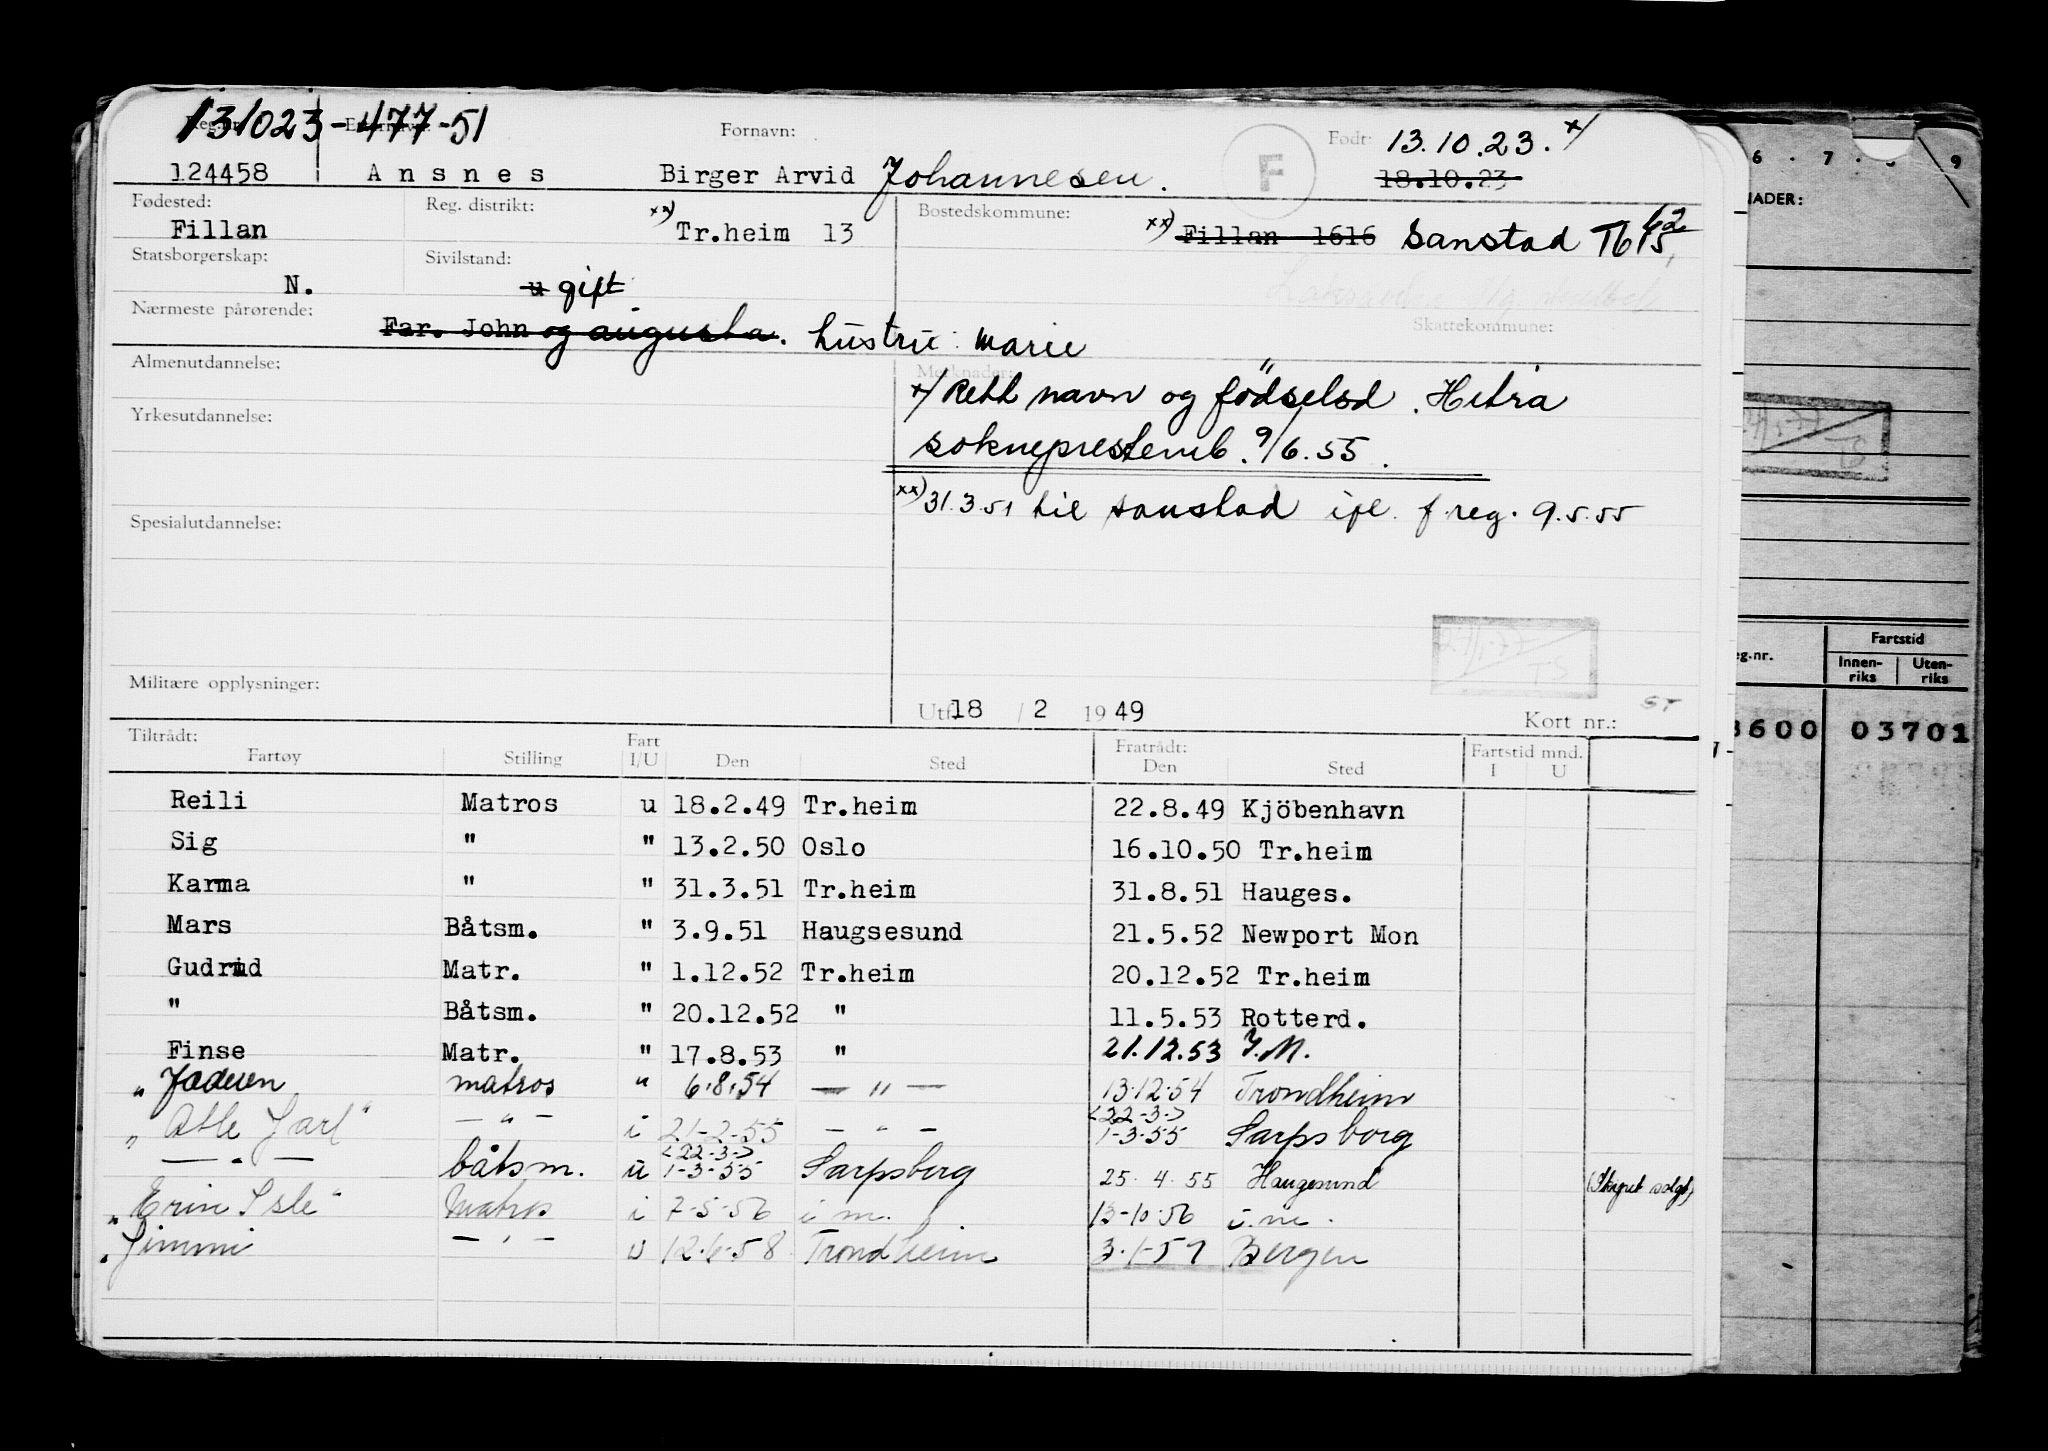 131023-477-51
Reg.nr. Etternavn: Fornavn: Født: 13.10.23. x/
124458 Ansnes Birger Arvid Johannesen. F 18.10.23
Fødested: Reg. distrikt: Bostedskommune:
Fillan xx) Tr.heim 13 xx) Fillan 1616 Sanstad T6 15, 62
Statsborgerskap: Sivilstand:
N. u gift
Nærmeste pårørende: Skattekommune:
Far. John og augusta. hustru: Marie
Almenutdannelse: Merknader:
x/ Rett navn og fødselsd. Hitra
Yrkesutdannelse:
sokneprestemb. 9/6.55.
xx) 31.3.51 til Sanstad ifl. f.reg. 9.5.55
Spesialutdannelse:
24/1-77
TS
Militære opplysninger:
Utf. 18 / 2 1949 Kort nr.: ST
Tiltrådt: Fart Fratrådt: Fartstid mnd.
Fartøy Stilling I/U Den Sted Den Sted I U
Reili Matros u 18.2.49 Tr.heim 22.8.49 Kjöbenhavn
Sig " " 13.2.50 Oslo 16.10.50 Tr.heim
Karma " " 31.3.51 Tr.heim 31.8.51 Hauges.
Mars Båtsm. " 3.9.51 Haugsesund 21.5.52 Newport Mon
Gudrid Matr. " 1.12.52 Tr.heim 20.12.52 Tr.heim
" Båtsm. " 20.12.52 " 11.5.53 Rotterd.
Finse Matr. " 17.8.53 " 21.12.53 I.M.
" Jaderen matros " 6.8.54 — " — 13.12.54 Trondheim
<22-3->
„Atle Jarl" — " — i 21-2-55 — " — 1-3-55 Sarpsborg
<22-3->
— " — båtsm. u 1-3-55 Sarpsborg 25.4.55 Haugesund (Skipet solgt)
„Erin Isle" Matros i 7-5-56 i.m. 13-10-56 i.m.
„Jimmi — " — u 12.6-58 Trondheim 3.1-59 Bergen
6 . 7 . 8 . 9
NADER:
24/1-77
TS
eg.nr. Fartstid
Innen-riks Uten-riks
3600 03701